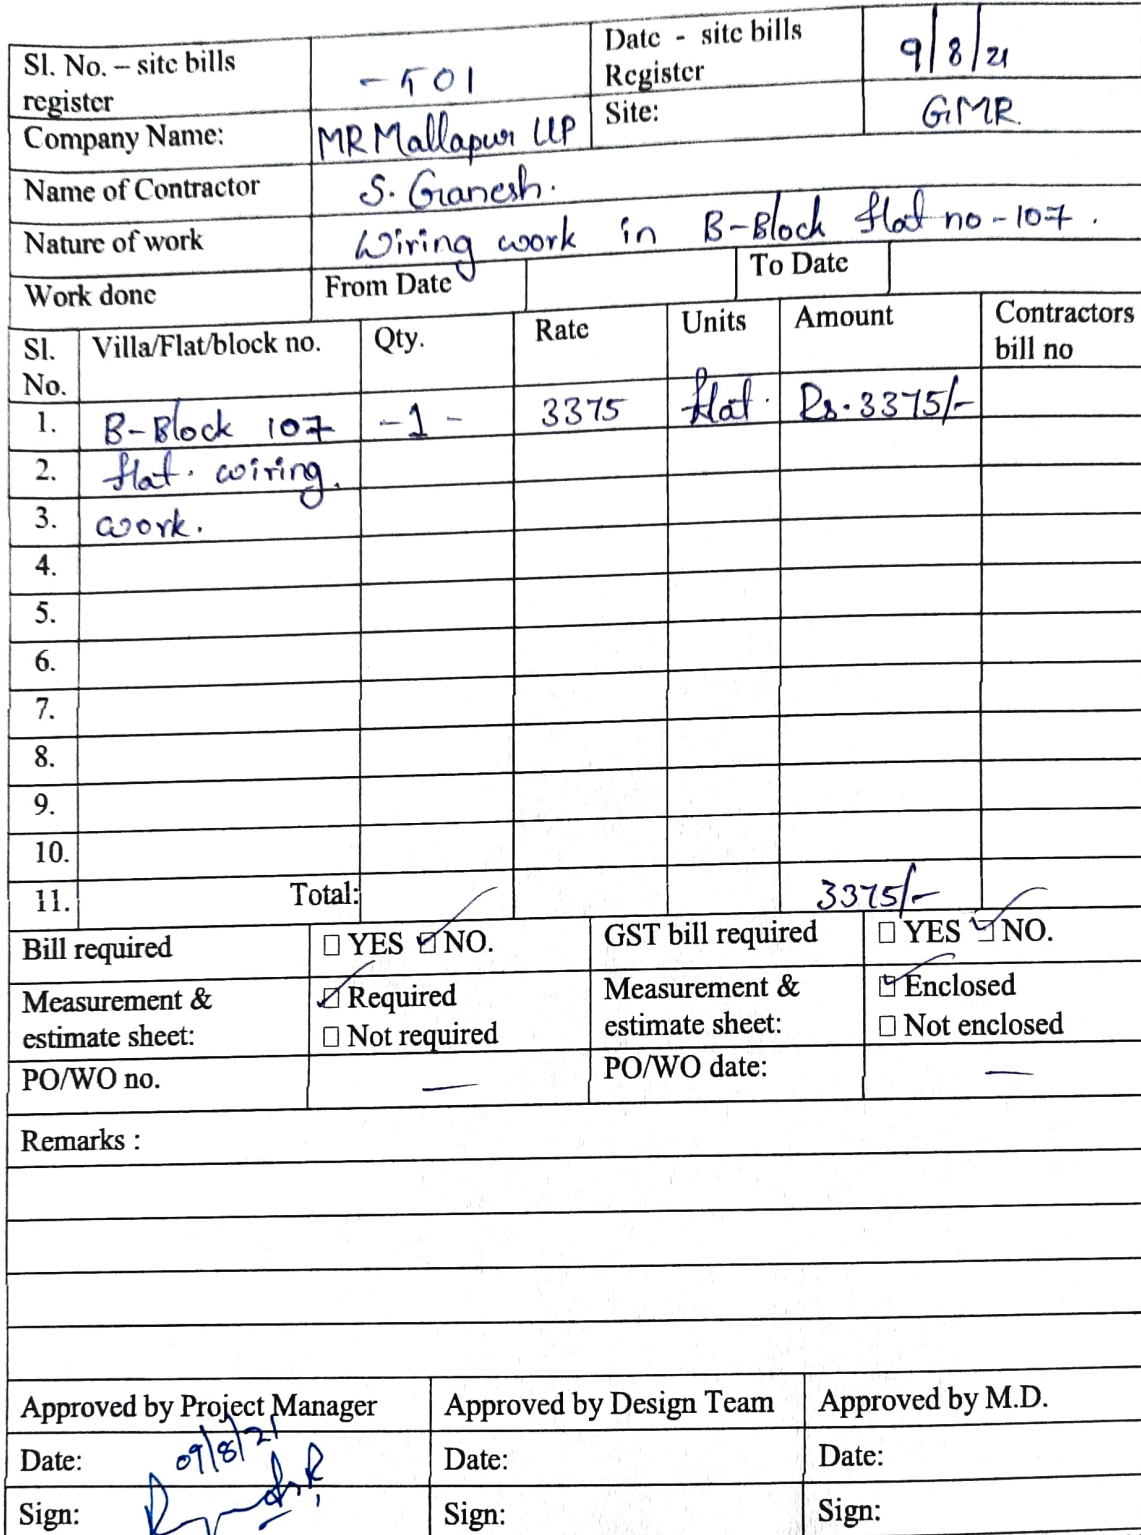 Sl. No. – site bills register - 501 Date - site bills Register 9/8/21
Company Name: MR Mallapur LLP Site: GMR.
Name of Contractor S. Ganesh.
Nature of work Wiring work in B-Block flat no - 107.
Work done From Date To Date
Sl. No. Villa/Flat/block no. Qty. Rate Units Amount Contractors bill no
1. B-Block 107 -1- 3375 flat. Rs. 3375/-
2. flat. wiring.
3. work.
4.
5.
6.
7.
8.
9.
10.
11. Total: 3375/-
Bill required ☐ YES ☑ NO. GST bill required ☐ YES ☑ NO.
Measurement & estimate sheet: ☑ Required ☐ Not required Measurement & estimate sheet: ☑ Enclosed ☐ Not enclosed
PO/WO no. — PO/WO date: —
Remarks :
Approved by Project Manager Approved by Design Team Approved by M.D.
Date: 09/8/21 Date: Date:
Sign: Sign: Sign: